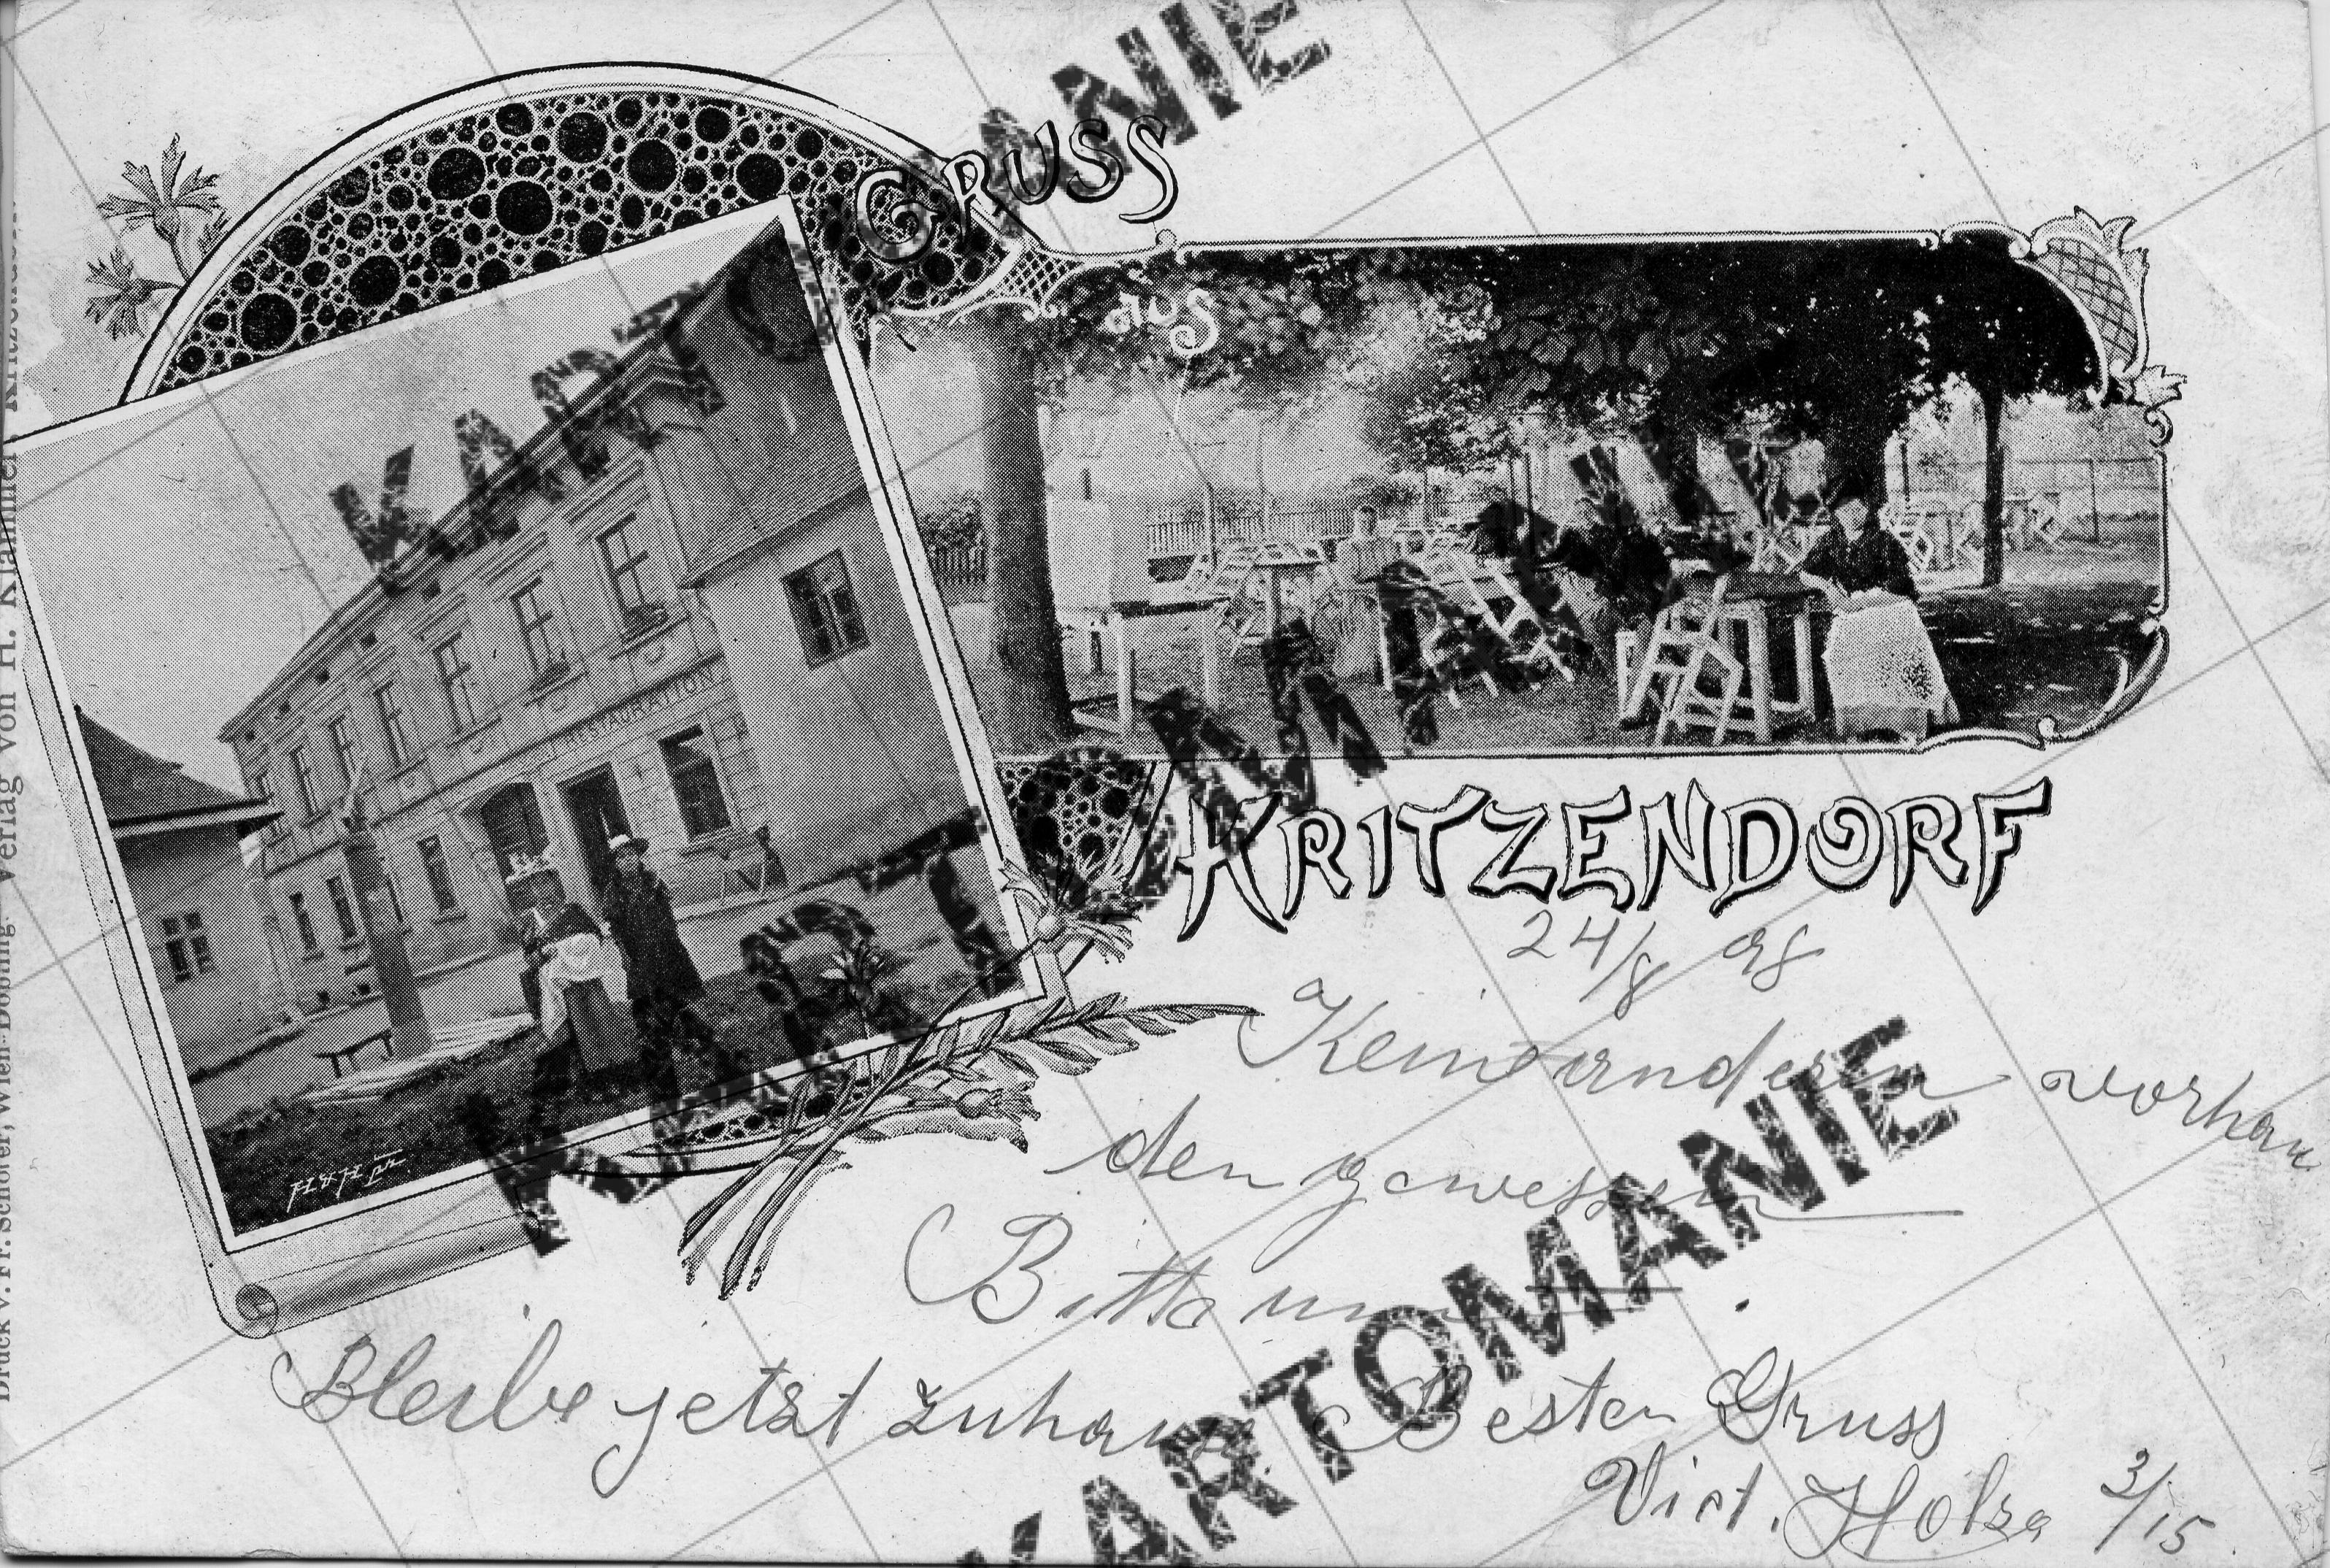 GRUSS
aus
KRITZENDORF
RESTAURATION
24/8 98
Keine anderen vorhan
den gewessen
Bitte um
Bleibe jetzt zuhause. Besten Gruss
Vict. Holza 3/15
Druck v. Fr. Schörer, Wien-Döbling. Verlag von H. Klammer, Kritzendorf.
KARTOMANIE
KARTOMANIE
KARTOMANIE